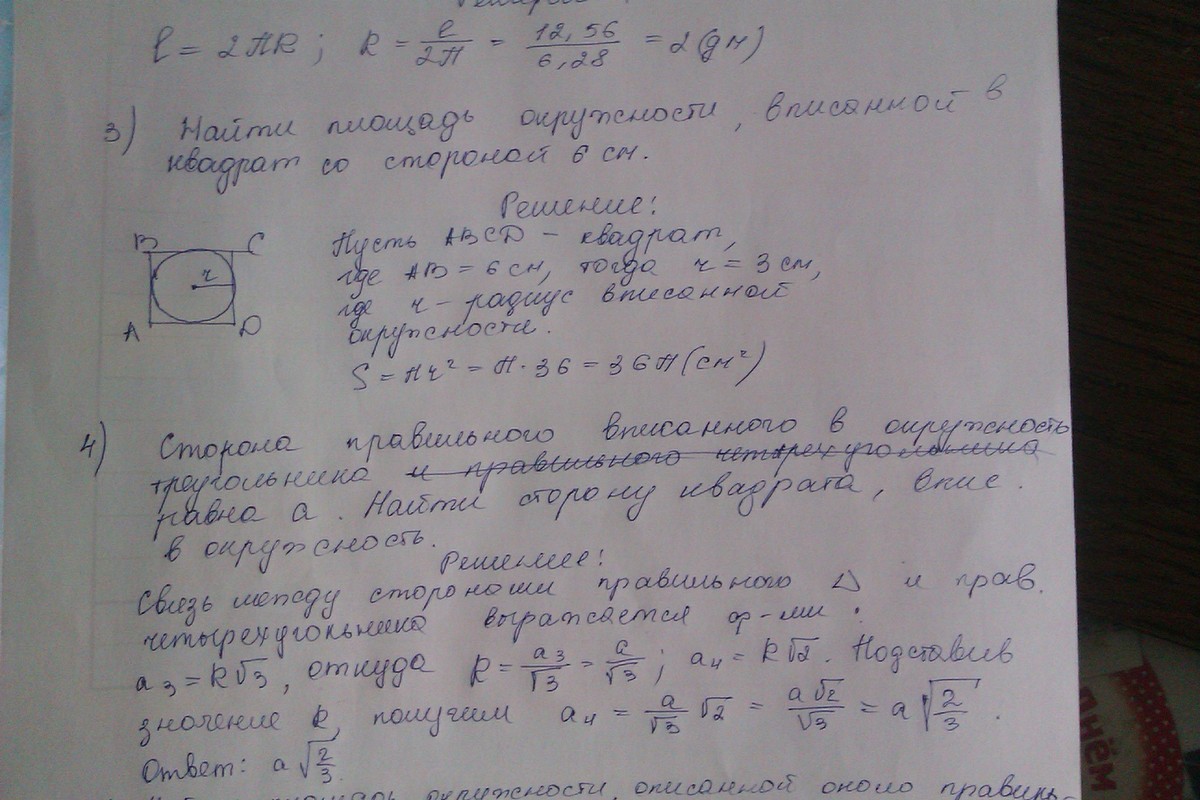 l = 2ПR ; R = l/2П = 12,56/6,28 = 2 (дм)
3) Найти площадь окружности, вписанной в
квадрат со стороной 6 см.
Решение:
B C
r
A D
Пусть ABCD – квадрат,
где AB = 6 см, тогда r = 3 см,
где r – радиус вписанной
окружности.
S = Пr² = П · 36 = 36П (см²)
4) Сторона правильного вписанного в окружность
треугольника и правильного четырехугольника
равна a. Найти сторону квадрата, впис.
в окружность.
Решение:
Связь между сторонами правильного Δ и прав.
четырехугольника выражается ф-ми :
a₃ = R√3, откуда R = a₃/√3 = a/√3 ; a₄ = R√2. Подставив
значение R, получим a₄ = a/√3 √2 = a√2/√3 = a√(2/3) .
Ответ: a√(2/3).
площадь окружности, описанной около правиль-
нём